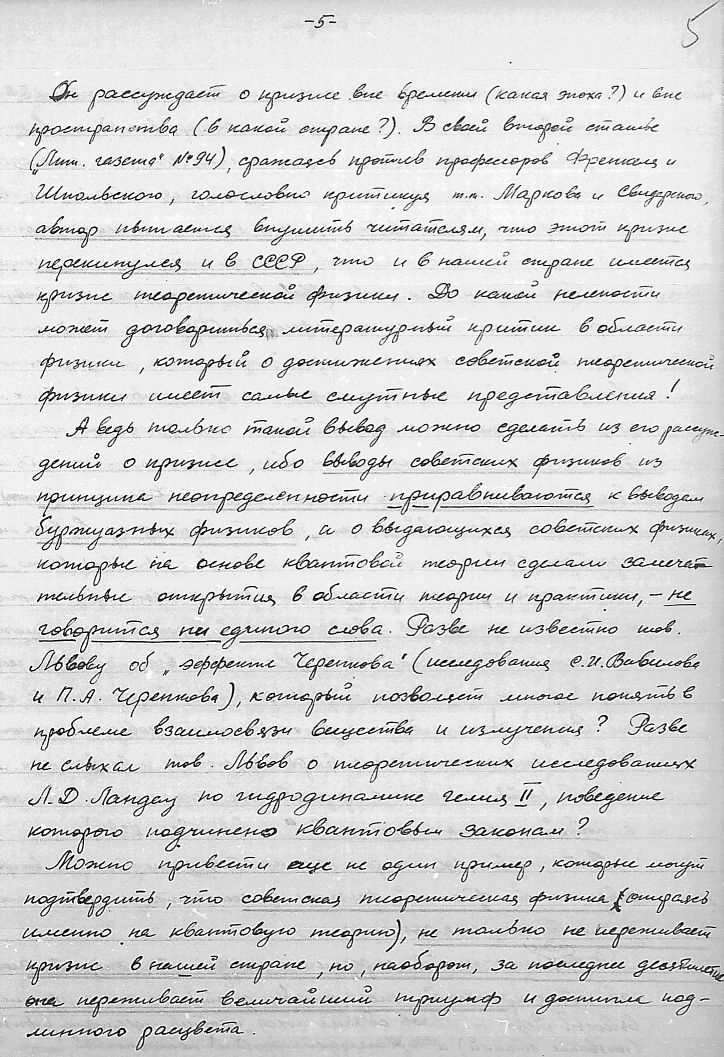 -5-
5
Он рассуждает о кризисе вне времени (какая эпоха?) и вне
пространства (в какой стране?). В своей второй статье
(„Лит. газета" №94), сражаясь против профессоров Френкеля и
Шпольского, голословно критикуя т.т. Маркова и Свидерского,
автор пытается внушить читателям, что этот кризис
перекинулся и в СССР, что и в нашей стране имеется
кризис теоретической физики. До какой нелепости
может договориться литературный критик в области
физики, который о достижениях советской теоретической
физики имеет самые смутные представления!
А ведь только такой вывод можно сделать из его рассуж-
дений о кризисе, ибо выводы советских физиков из
принципа неопределенности приравниваются к выводам
буржуазных физиков, а о выдающихся советских физиках,
которые на основе квантовой теории сделали замеча-
тельные открытия в области теории и практики, – не
говорится ни единого слова. Разве не известно тов.
Львову об „эффекте Черенкова" (исследования С.И. Вавилова
и П.А. Черенкова), который позволяет многое понять в
проблеме взаимосвязи вещества и излучения? Разве
не слыхал тов. Львов о теоретических исследованиях
Л.Д. Ландау по гидродинамике гелия II, поведение
которого подчинено квантовым законам?
Можно привести еще не один пример, которые могут
подтвердить, что советская теоретическая физика (опираясь
именно на квантовую теорию), не только не переживает
кризис в нашей стране, но, наоборот, за последнее десятилетие
она переживает величайший триумф и достигла под-
линного расцвета.